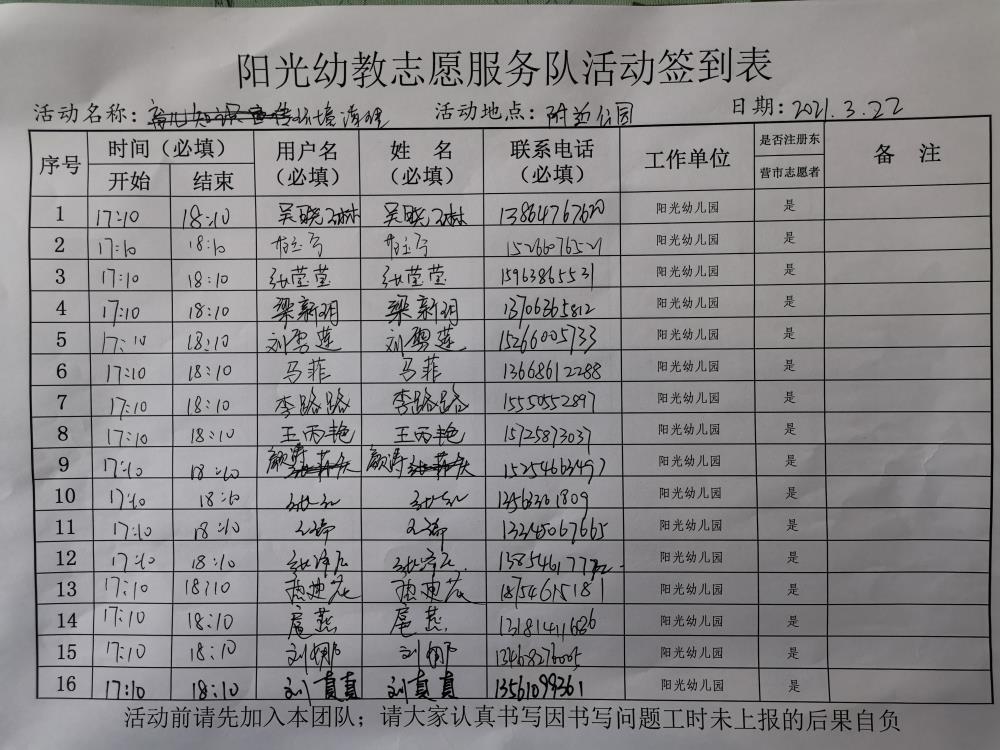 阳光幼教志愿服务队活动签到表
活动名称：环境清理 活动地点：附近公园 日期：2021.3.22
序号 时间（必填） 用户名（必填） 姓 名（必填） 联系电话（必填） 工作单位 是否注册东营市志愿者 备 注
开始 结束
1 17:10 18:10 吴晓琳 吴晓琳 13864767620 阳光幼儿园 是
2 17:10 18:10 15266076521 阳光幼儿园 是
3 17:10 18:10 张莹莹 张莹莹 15963865531 阳光幼儿园 是
4 17:10 18:10 梁新玥 梁新玥 13706365812 阳光幼儿园 是
5 17:10 18:10 刘雪莲 刘雪莲 15266005733 阳光幼儿园 是
6 17:10 18:10 马菲 马菲 13668612288 阳光幼儿园 是
7 17:10 18:10 李路路 李路路 15550552897 阳光幼儿园 是
8 17:10 18:10 王丙艳 王丙艳 15725873037 阳光幼儿园 是
9 17:10 18:10 顾涛 顾涛 15254663497 阳光幼儿园 是
10 17:10 18:10 阳光幼儿园 是
11 17:10 18:10 阳光幼儿园 是
12 17:10 18:10 阳光幼儿园 是
13 17:10 18:10 18754615181 阳光幼儿园 是
14 17:10 18:10 扈燕 扈燕 13181411686 阳光幼儿园 是
15 17:10 18:10 刘娜 刘娜 13468276005 阳光幼儿园 是
16 17:10 18:10 刘真真 刘真真 13561099361 阳光幼儿园 是
活动前请先加入本团队；请大家认真书写因书写问题工时未上报的后果自负